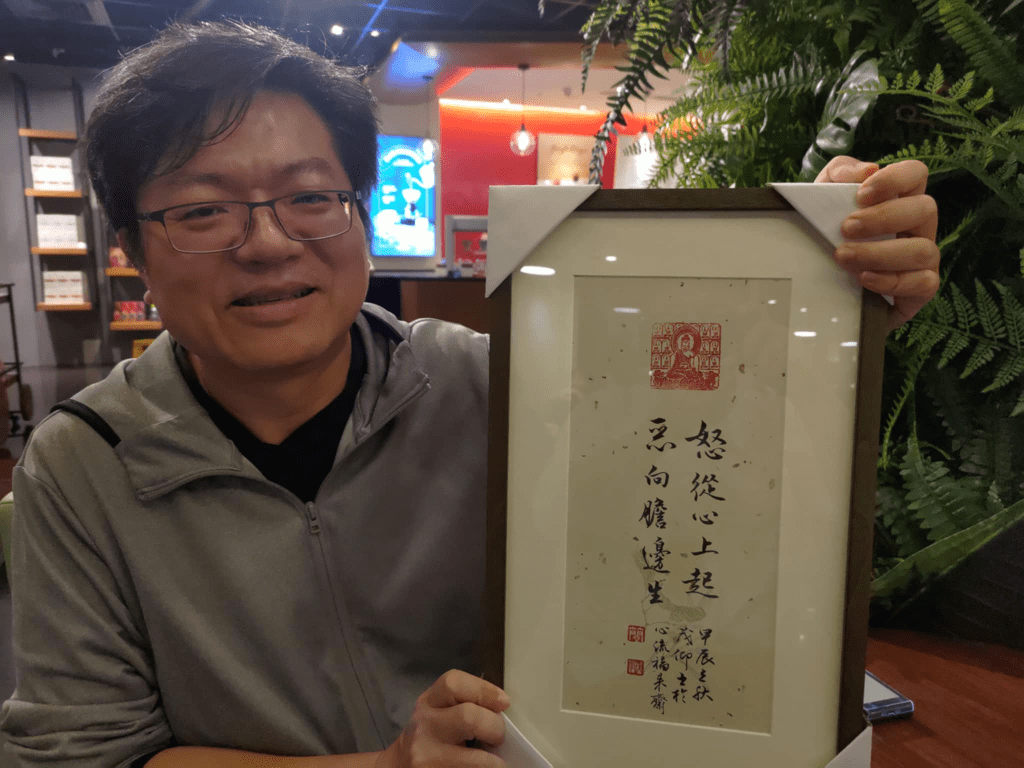 怒從心上起
惡向膽邊生
甲辰之秋
茂仰書於
心流福呆齋